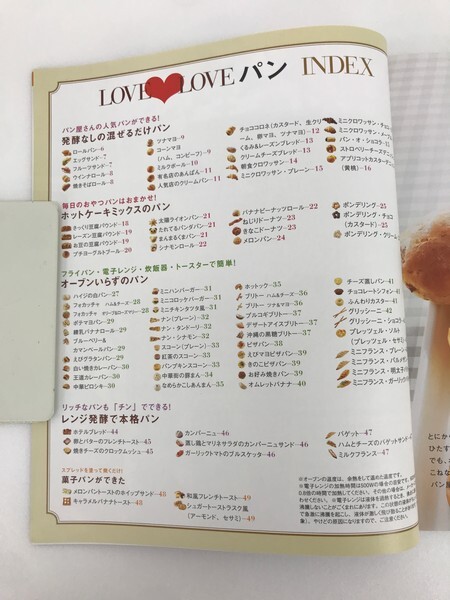 LOVE LOVE パン INDEX
パン屋さんの人気パンができる!
発酵なしの混ぜるだけパン
ロールパン–6
エッグサンド–7
フルーツサンド–7
ウインナロール–8
焼きそばロール–8
ツナマヨ–9
コーンマヨ
(ハム、コンビーフ)–9
ミルクボール–10
有名店のあんぱん–11
人気店のクリームパン–11
チョココロネ(カスタード、生クリ
ーム、卵マヨ、ツナマヨ)–12
くるみ&レーズンブレッド–13
クリームチーズブレッド–13
朝食クロワッサン–14
ミニクロワッサン・プレーン–15
ミニクロワッサン・チョ
ミニクロワッサン・メープ
パン・オ・ショコラ
ストロベリーチーズ
アプリコットカスター
(黄桃)–16
毎日のおやつパンはおまかせ!
ホットケーキミックスのパン
さっくり豆腐パウンド–18
レーズン豆腐パウンド–19
お豆の豆腐パウンド–19
プチヨーグルトブール–20
太陽ライオンパン–21
たれてるパンダパン–21
まんまるくまパン–21
シナモンロール–22
バナナピーナッツロール–22
ねじりドーナツ–23
きなこドーナツ–23
メロンパン–24
ポンデリング–25
ポンデリング・チョコ
(カスタード)–25
ポンデリング・クリーム
フライパン・電子レンジ・炊飯器・トースターで簡単!
オーブンいらずのパン
ハイジの白パン–27
フォカッチャ ハム&チーズ–28
フォカッチャ オリーブ&ローズマリー–28
ポテマヨパン–29
練乳バナナロール–29
ブルーベリー&
カマンベールパン–29
えびグラタンパン–30
白い焼きカレーパン–30
王道カレーパン–30
中華ピロシキ–30
ミニハンバーガー–31
ミニコロッケバーガー–31
ミニチキンタツタ風–31
ナン(プレーン)–32
ナン・タンドリー–32
ナン・シナモン–32
スコーン(プレーン)–33
紅茶のスコーン–33
パンプキンスコーン–33
中華街の豚まん–34
なめらかこしあんまん–35
ホットック–35
ブリトー ハム&チーズ–36
ブルコギブリトー–37
デザートアイスブリトー–37
沖縄の黒糖ブリトー–37
ピザパン–38
えびマヨピザパン–39
きのこピザパン–39
お好み焼きパン–39
オムレットバナナ–40
チーズ蒸しパン–41
チョコレートシフォン–41
ふんわりカステラ–41
グリッシーニ–42
グリッシーニ・ショコラ
プレッツェル・ソルト
(プレッツェル・セサミ)
ミニフランス・プレーン
ミニフランス・ベーコン
ミニフランス・明太子
ミニフランス・ガーリック
リッチなパンも「チン」でできる!
レンジ発酵で本格パン
ホテルブレッド–44
卵とバターのフレンチトースト–45
焼きチーズのクロックムッシュ–45
カンパーニュ–46
蒸し鶏とマリネサラダのカンパーニュサンド–46
ガーリックトマトのブルスケッタ–46
バゲット–47
ハムとチーズのバゲットサンド
ミルクフランス–47
スプレッドを塗って焼くだけ!
菓子パンができた
メロンパントーストのホイップサンド–48
キャラメルバナナトースト–48
和風フレンチトースト–49
シュガートーストラスク風
(アーモンド、セサミ)–49
とにか
ひたす
でも、
こねな
パン屋